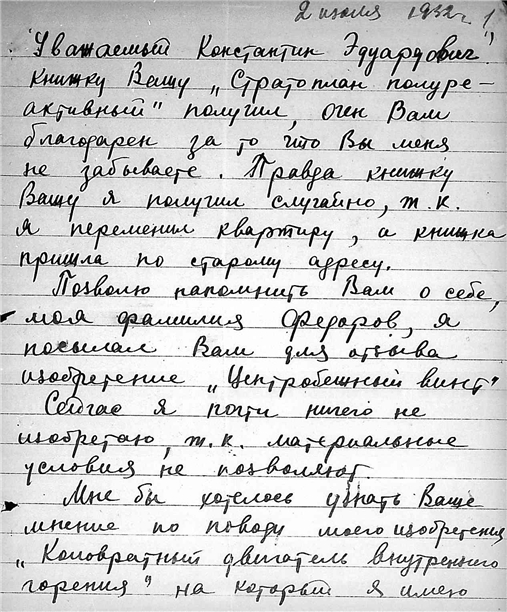 2 июля 1932 г.
"Уважаемый Константин Эдуардович!"
Книжку Вашу „Стратоплан полуре-
активный" получил, очен Вам
благодарен за то что Вы меня
не забываете. Правда книжку
Вашу я получил случайно, т.к.
я переменил квартиру, а книжка
пришла по старому адресу.
Позволю напомнить Вам о себе,
моя фамилия Федоров, я
посылал Вам для отзыва
изобретение „Центробежный винт"
Сейчас я почти ничего не
изобретаю, т.к. материальные
условия не позволяют.
Мне бы хотелось узнать Ваше
мнение по поводу моего изобретения
„Коловратный двигатель внутреннего
горения" на который я имею